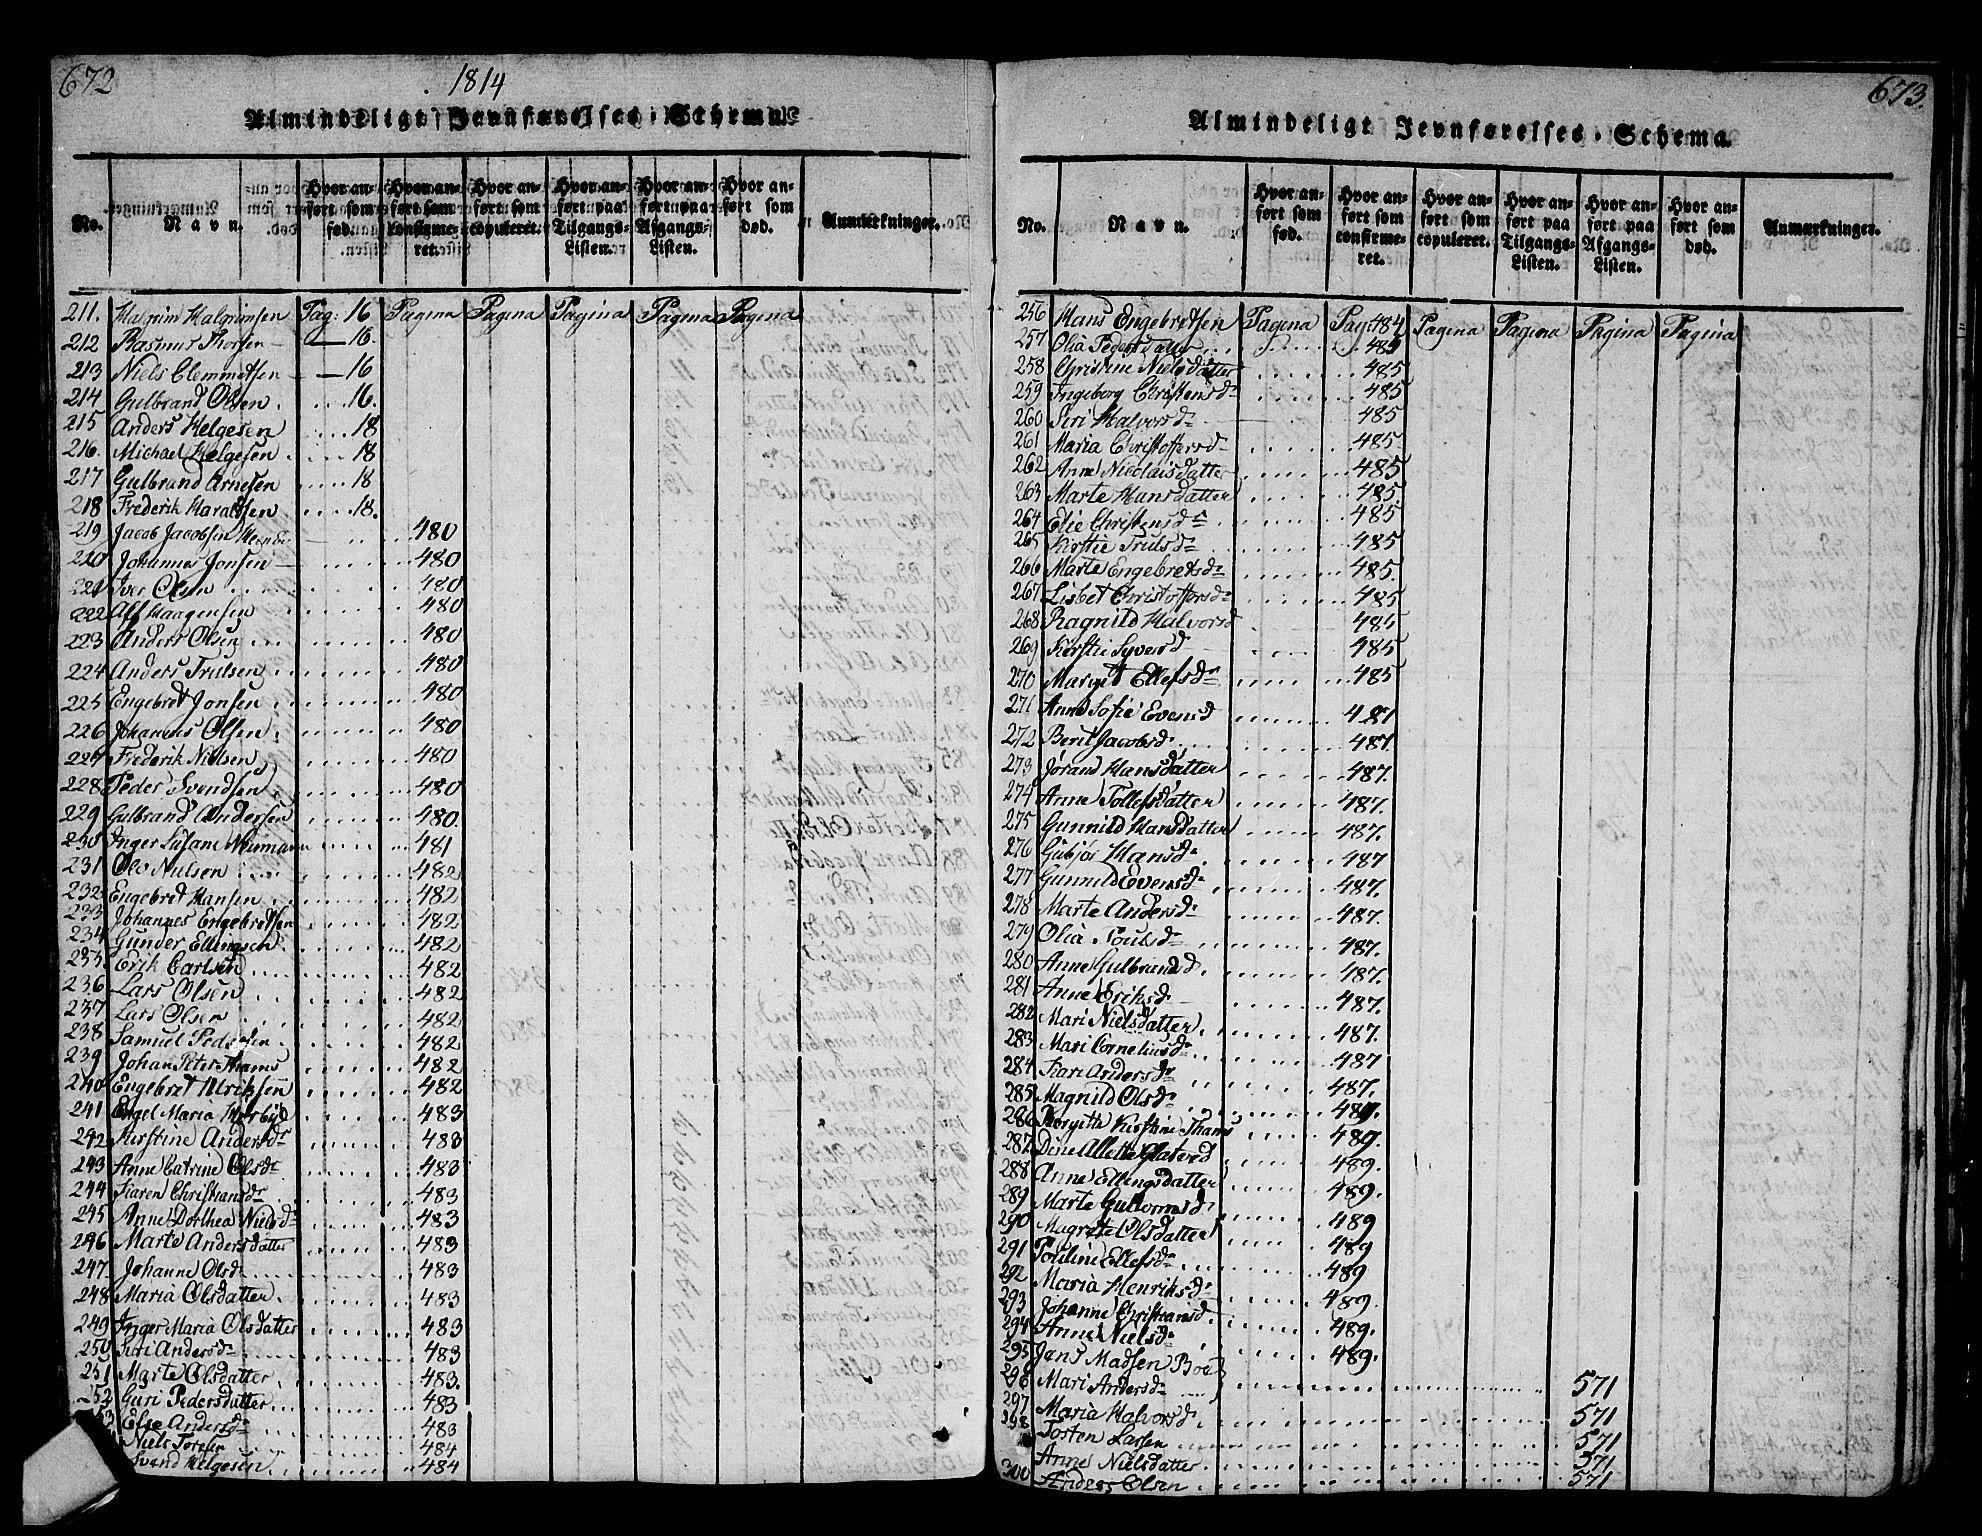 672
1814
Almindeligt Jevnførelses-Schema.
No.
Navn.
Hvor anført som fød.
Hvor anført som confirmeret.
Hvor anført som copuleret.
Hvor anført paa Tilgangs-Listen.
Hvor anført paa Afgangs-Listen.
Hvor anført som død.
Anmærkninger.
211. Halgrim Halgrimsen Pag: 16 Pagina Pagina Pagina Pagina Pagina
212 Rasmus Thorsen 16.
213 Niels Clemmetsen 16
214 Gulbrand Olsen 16.
215 Anders Helgesen 18
216. Michael Helgesen 18
217 Gulbrand Arnesen 18
218 Frederik Haraldsen 18.
219 Jacob Jacobsen 480
220 Johannes Jonsen 480
221 Iver Olsen 480
222 Alf Haagensen 480
223 Anders Olsen 480
224 Anders Trulsen 480
225 Engebret Jonsen 480
226 Johannes Olsen 480
227 Frederik Nielsen 480
228 Peder Svendsen 480
229 Gulbrand Andersen 480.
230 Inger Susane Neumann 481
231 Ole Nielsen 482
232 Engebret Hansen 482
233 Johannes Engebretsen 482
234 Gunder Ellingsen 482
235. Erik Carlsen 482
236 Lars Olsen 482
237 Lars Olsen 482
238 Samuel Pedersen 482
239 Johan Peter Thams 482
240 Engebret Ulriksen 482
241 Engel Maria 483
242 Kirstine Andersdr 483
243 Anne Catrine Olsdr 483
244 Karen Christiansdr 483
245 Anne Dorthea Nielsdr 483
246 Marte Andersdatter 483
247 Johanne Olsdr 483
248 Maria Olsdatter 483
249 Inger Maria Olsdatter 483
250 Siri Andersdr 483
251 Marte Olsdatter 483.
252 Guri Pedersdatter 483
Else Andersdr 483
Niels Toresen 484
Svend Helgesen 484
673.
Almindeligt Jevnførelses-Schema.
No.
Navn.
Hvor anført som fød.
Hvor anført som confirmeret.
Hvor anført som copuleret.
Hvor anført paa Tilgangs-Listen.
Hvor anført paa Afgangs-Listen.
Hvor anført som død.
Anmærkninger.
256 Hans Engebretsen Pagina Pag: 484 Pagina Pagina Pagina Pagina
257 Olia Pedersdatter 485
258 Christine Nielsdatter 485
259 Ingeborg Christensdr 485
260 Siri Halvorsdr 485
261 Maria Christoffersd 485
262 Anne Nicolaisdatter 485
263 Marte Hansdatter 485.
264 Elie Christensdr 485
265 Kirstie Trulsdr 485
266 Marte Engebretsdr 485.
267 Lisbet Christoffersdr 485
268 Ragnild Halvorsd 485
269 Kirstie Syversd 485
270 Margit Ellefsdr 485
271 Anne Sofie Evensd 487
272 Berit Jacobsdr 487.
273 Jørand Hansdatter 487.
274 Anne Tollefsdatter 487.
275 Gunnild Hansdatter 487.
276 Gubjør Hansdr 487
277 Gunnild Evensdr 487.
278 Marte Andersdr 487.
279 Olia Poulsdr 487.
280 Anne Gulbrandsd 487.
281 Anne Eriksdr 487.
282 Mari Nielsdatter 487.
283 Mari Corneliusdr 487
284 Kari Andersdr 487.
285 Magnild Olsdr 489.
286 Kirstine Thams 489.
287 Dine Alette 489.
288 Anne Ellingsdatter 489.
289 Marte 489
290 Magrete Olsdatter 489
291 Pouline Ellefsdr 489
292 Maria Henriksdr 489.
293 Johanne Christiansd 489.
294 Anne Nielsdr 489.
295 Jens Madsen Boe 571
296 Mari Andersdr 571
297 Maria Halvorsdr 571
298 Torsten Larsen 571
Anne Nielsdatter 571
300 Anders Olsen